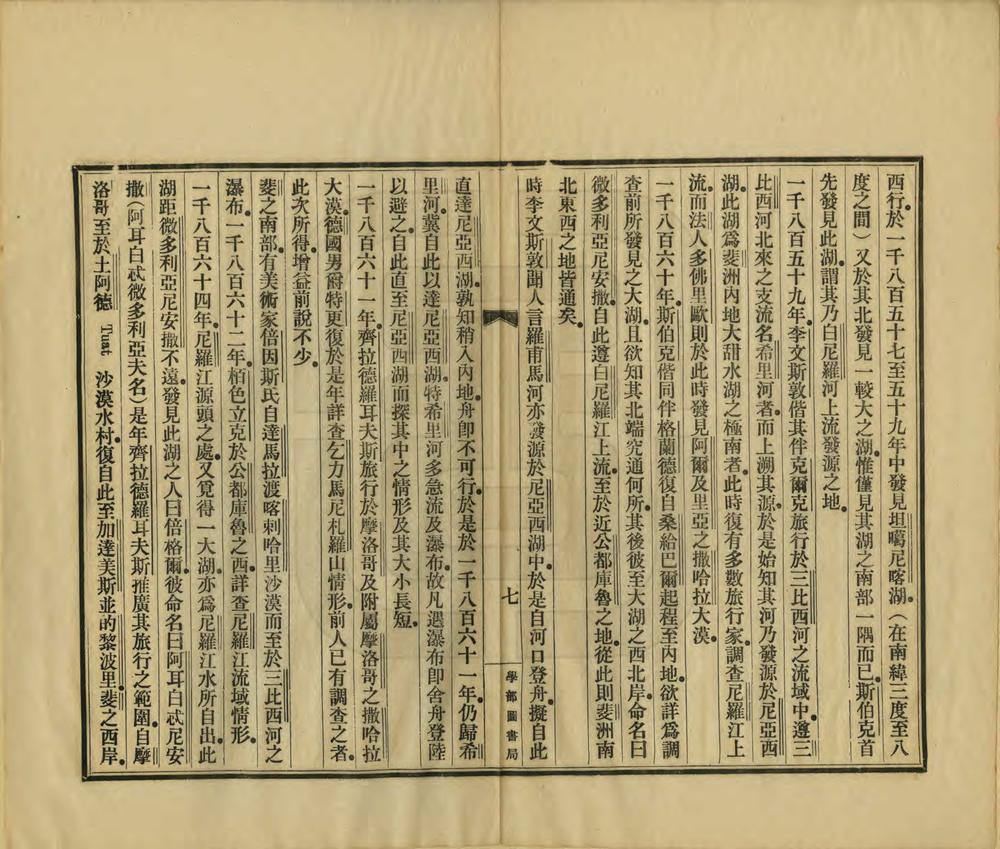 西行。於一千八百五十七至五十九年中發見坦噶尼喀湖。(在南緯三度至八
度之間)又於其北發見一較大之湖。惟僅見其湖之南部一隅而已。斯伯克首
先發見此湖。謂其乃白尼羅河上流發源之地。
一千八百五十九年。李文斯敦偕其伴克爾克旅行於三比西河之流域中。遵三
比西河北來之支流名希里河者。而上溯其源。於是始知其河乃發源於尼亞西
湖。此湖爲斐洲內地大甜水湖之極南者。此時復有多數旅行家。調查尼羅江上
流。而法人多佛里歐則於此時發見阿爾及里亞之撒哈拉大漠。
一千八百六十年。斯伯克偕同伴格蘭德復自桑給巴爾起程至內地。欲詳爲調
查前所發見之大湖。且欲知其北端究通何所。其後彼至大湖之西北岸。命名曰
微多利亞尼安撒。自此遵白尼羅江上流。至於近公都庫魯之地。從此則斐洲南
北東西之地皆通矣。
時李文斯敦聞人言羅甫馬河亦發源於尼亞西湖中。於是自河口登舟。擬自此
七
學部圖書局
直達尼亞西湖。孰知稍入內地。舟卽不可行。於是於一千八百六十一年。仍歸希
里河。冀自此以達尼亞西湖。特希里河多急流及瀑布。故凡遇瀑布卽舍舟登陸
以避之。自此直至尼亞西湖而探其中之情形及其大小長短。
一千八百六十一年。齊拉德羅耳夫斯旅行於摩洛哥及附屬摩洛哥之撒哈拉
大漠。德國男爵特更復於是年詳查乞力馬尼札羅山情形。前人已有調查之者。
此次所得。增益前說不少。
斐之南部。有美術家倍因斯氏自達馬拉渡喀剌哈里沙漠而至於三比西河之
瀑布。一千八百六十二年。栢色立克於公都庫魯之西。詳查尼羅江流域情形。
一千八百六十四年。尼羅江源頭之處。又覓得一大湖。亦爲尼羅江水所自出。此
湖距微多利亞尼安撒不遠。發見此湖之人曰倍格爾。彼命名曰阿耳白忒尼安
撒。(阿耳白忒微多利亞夫名)是年齊拉德羅耳夫斯推廣其旅行之範圍。自摩
洛哥至於土阿德 Tuat 沙漠水村。復自此至加達美斯並的黎波里。斐之西岸。